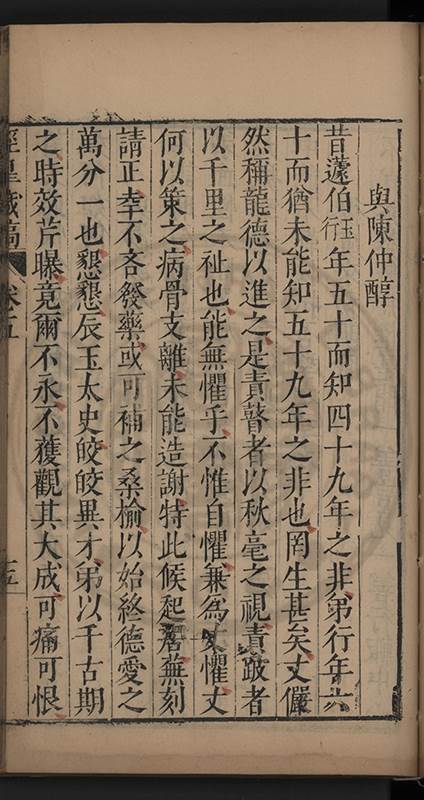 與陳仲醇
昔蘧伯玉行年五十而知四十九年之非弟行年六
十而猶未能知五十九年之非也罔生甚矣丈儼
然稱龍德以進之是責瞽者以秋毫之視責跛者
以千里之祉也能無懼乎不惟自懼兼為丈懼丈
何以策之病骨支離未能造謝特此候起居蕪刻
請正幸不吝發藥或可補之桑榆以始終德愛之
萬分一也懇懇辰玉太史皎皎異才弟以千古期
之時效芹曝竟爾不永不獲觀其大成可痛可恨
涇皐藏稿 卷五 十五